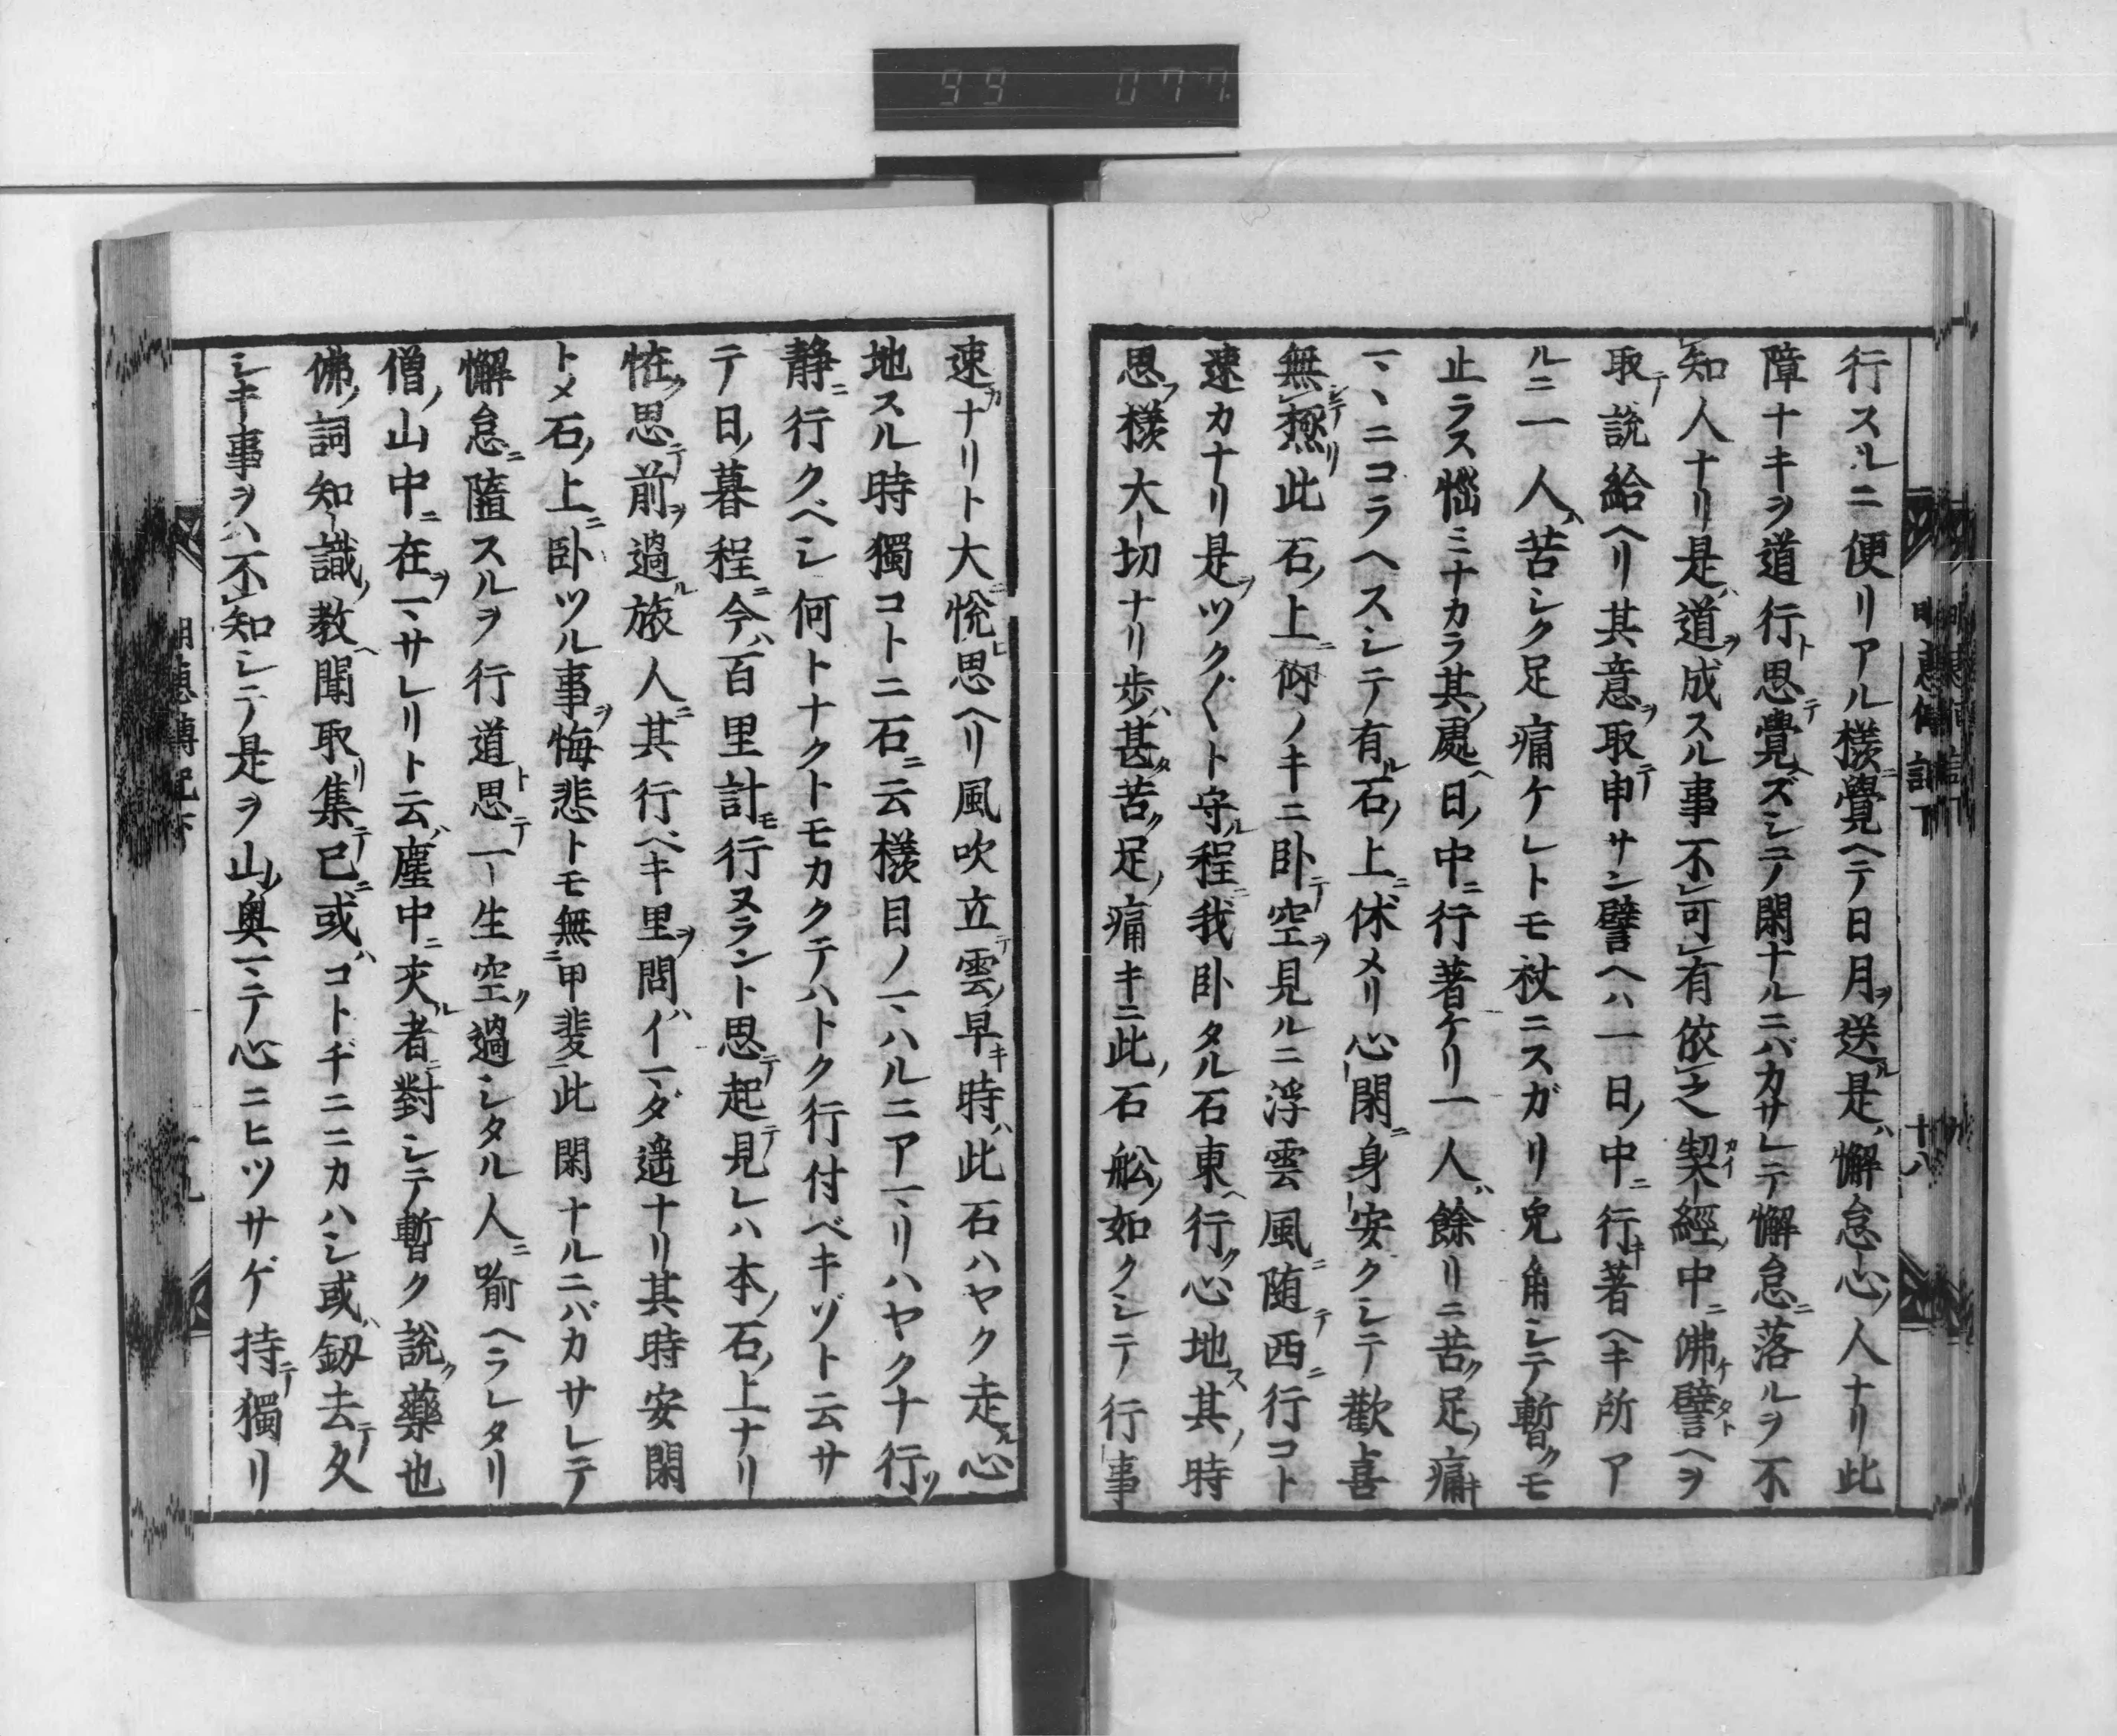 99 077
明恵傳記下
十八
行スルニ便リアル樣ニ覺ヘテ日月ヲ送ル是ハ懈怠ノ心ノ人ナリ此
障ナキヲ道行ト思テ覺ヘズシテノ閑ナルニバカサレテ懈怠ニ落ルヲ不
知人ナリ是ハ道ヲ成スル事不可有依之契經ノ中ニ佛譬ヘヲ
取テ説給ヘリ其意ヲ取テ申サン譬ヘハ一日ノ中ニ行キ著ヘキ所ア
ルニ一人ハ苦シク足痛ケレトモ杖ニスガリ兔角シテ暫クモ
止ラス惱ミナカラ其ノ處ヘ日ノ中ニ行著ケリ一人ハ餘リニ苦ク足ノ痛キ
マヽニコラヘスシテ有ル石ノ上ニ休メリ心閑ニ身安クシテ歡喜
無極シテリ此石ノ上ニ仰ノキニ卧テ空ヲ見ルニ浮雲風ニ随テ西ニ行コト
速カナリ是ヲツク〱ト守ル程ニ我卧タル石東ヘ行ク心地ス其ノ時
思フ樣大切ナリ歩ハ甚タ苦ク足ノ痛キニ此ノ石舩ノ如クシテ行事
速カナリト大ニ悅ヒ思ヘリ風吹立テ雲ノ早キ時ハ此石ハヤク走ル心
地スル時獨コトニ石ニ云樣目ノマハルニアマリハヤクナ行ソ
静ニ行クベシ何トナクトモカクテハトク行付ベキゾト云サ
テ日ノ暮程ニ今ハ百里計モ行ヌラント思テ起テ見レハ本ノ石ノ上ナリ
恠ク思テ前ヲ過ル旅人ニ其行ベキ里ヲ問ハイマダ遥ナリ其時安閑
トメ石ノ上ニ卧ツル事ヲ悔悲トモ無甲斐ニ此閑ナルニバカサレテ
懈怠ニ墮スルヲ行道ト思テ一生空ク過シタル人ニ喻ヘラレタリ
僧ノ山中ニ在ヲマサレリト云ハ塵中ニ夾ル者ニ對シテ暫ク説ク藥也
佛ノ詞知識ノ教ヘ聞取リ集テ已ニ或ハコトヂニニカハシ或ハ釼去テ久
シキ事ヲハ不知シテ是ヲ山ノ奥マテ心ニヒツサゲ持テ獨リ
明恵傳記下
十九